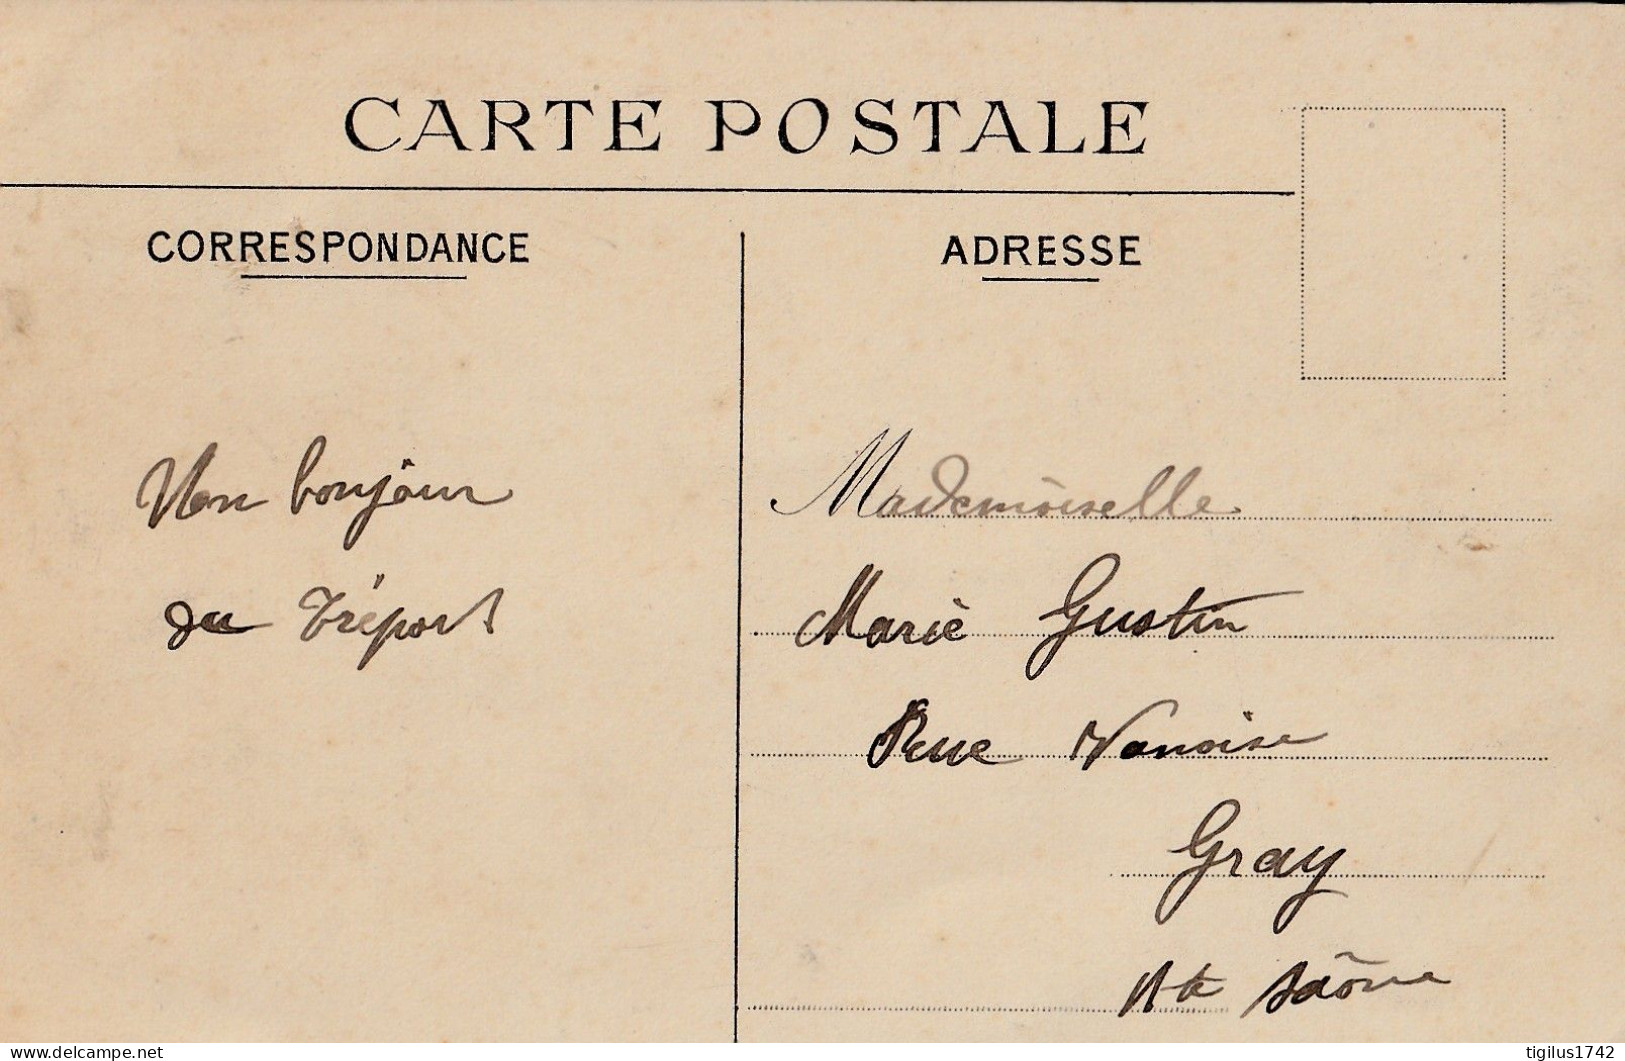 CARTE POSTALE
CORRESPONDANCE
ADRESSE
Un bonjour
du Tréport
Mademoiselle
Marie Gustin
Rue Vanoise
Gray
Hte Saône
delcampe.net
tigilus1742